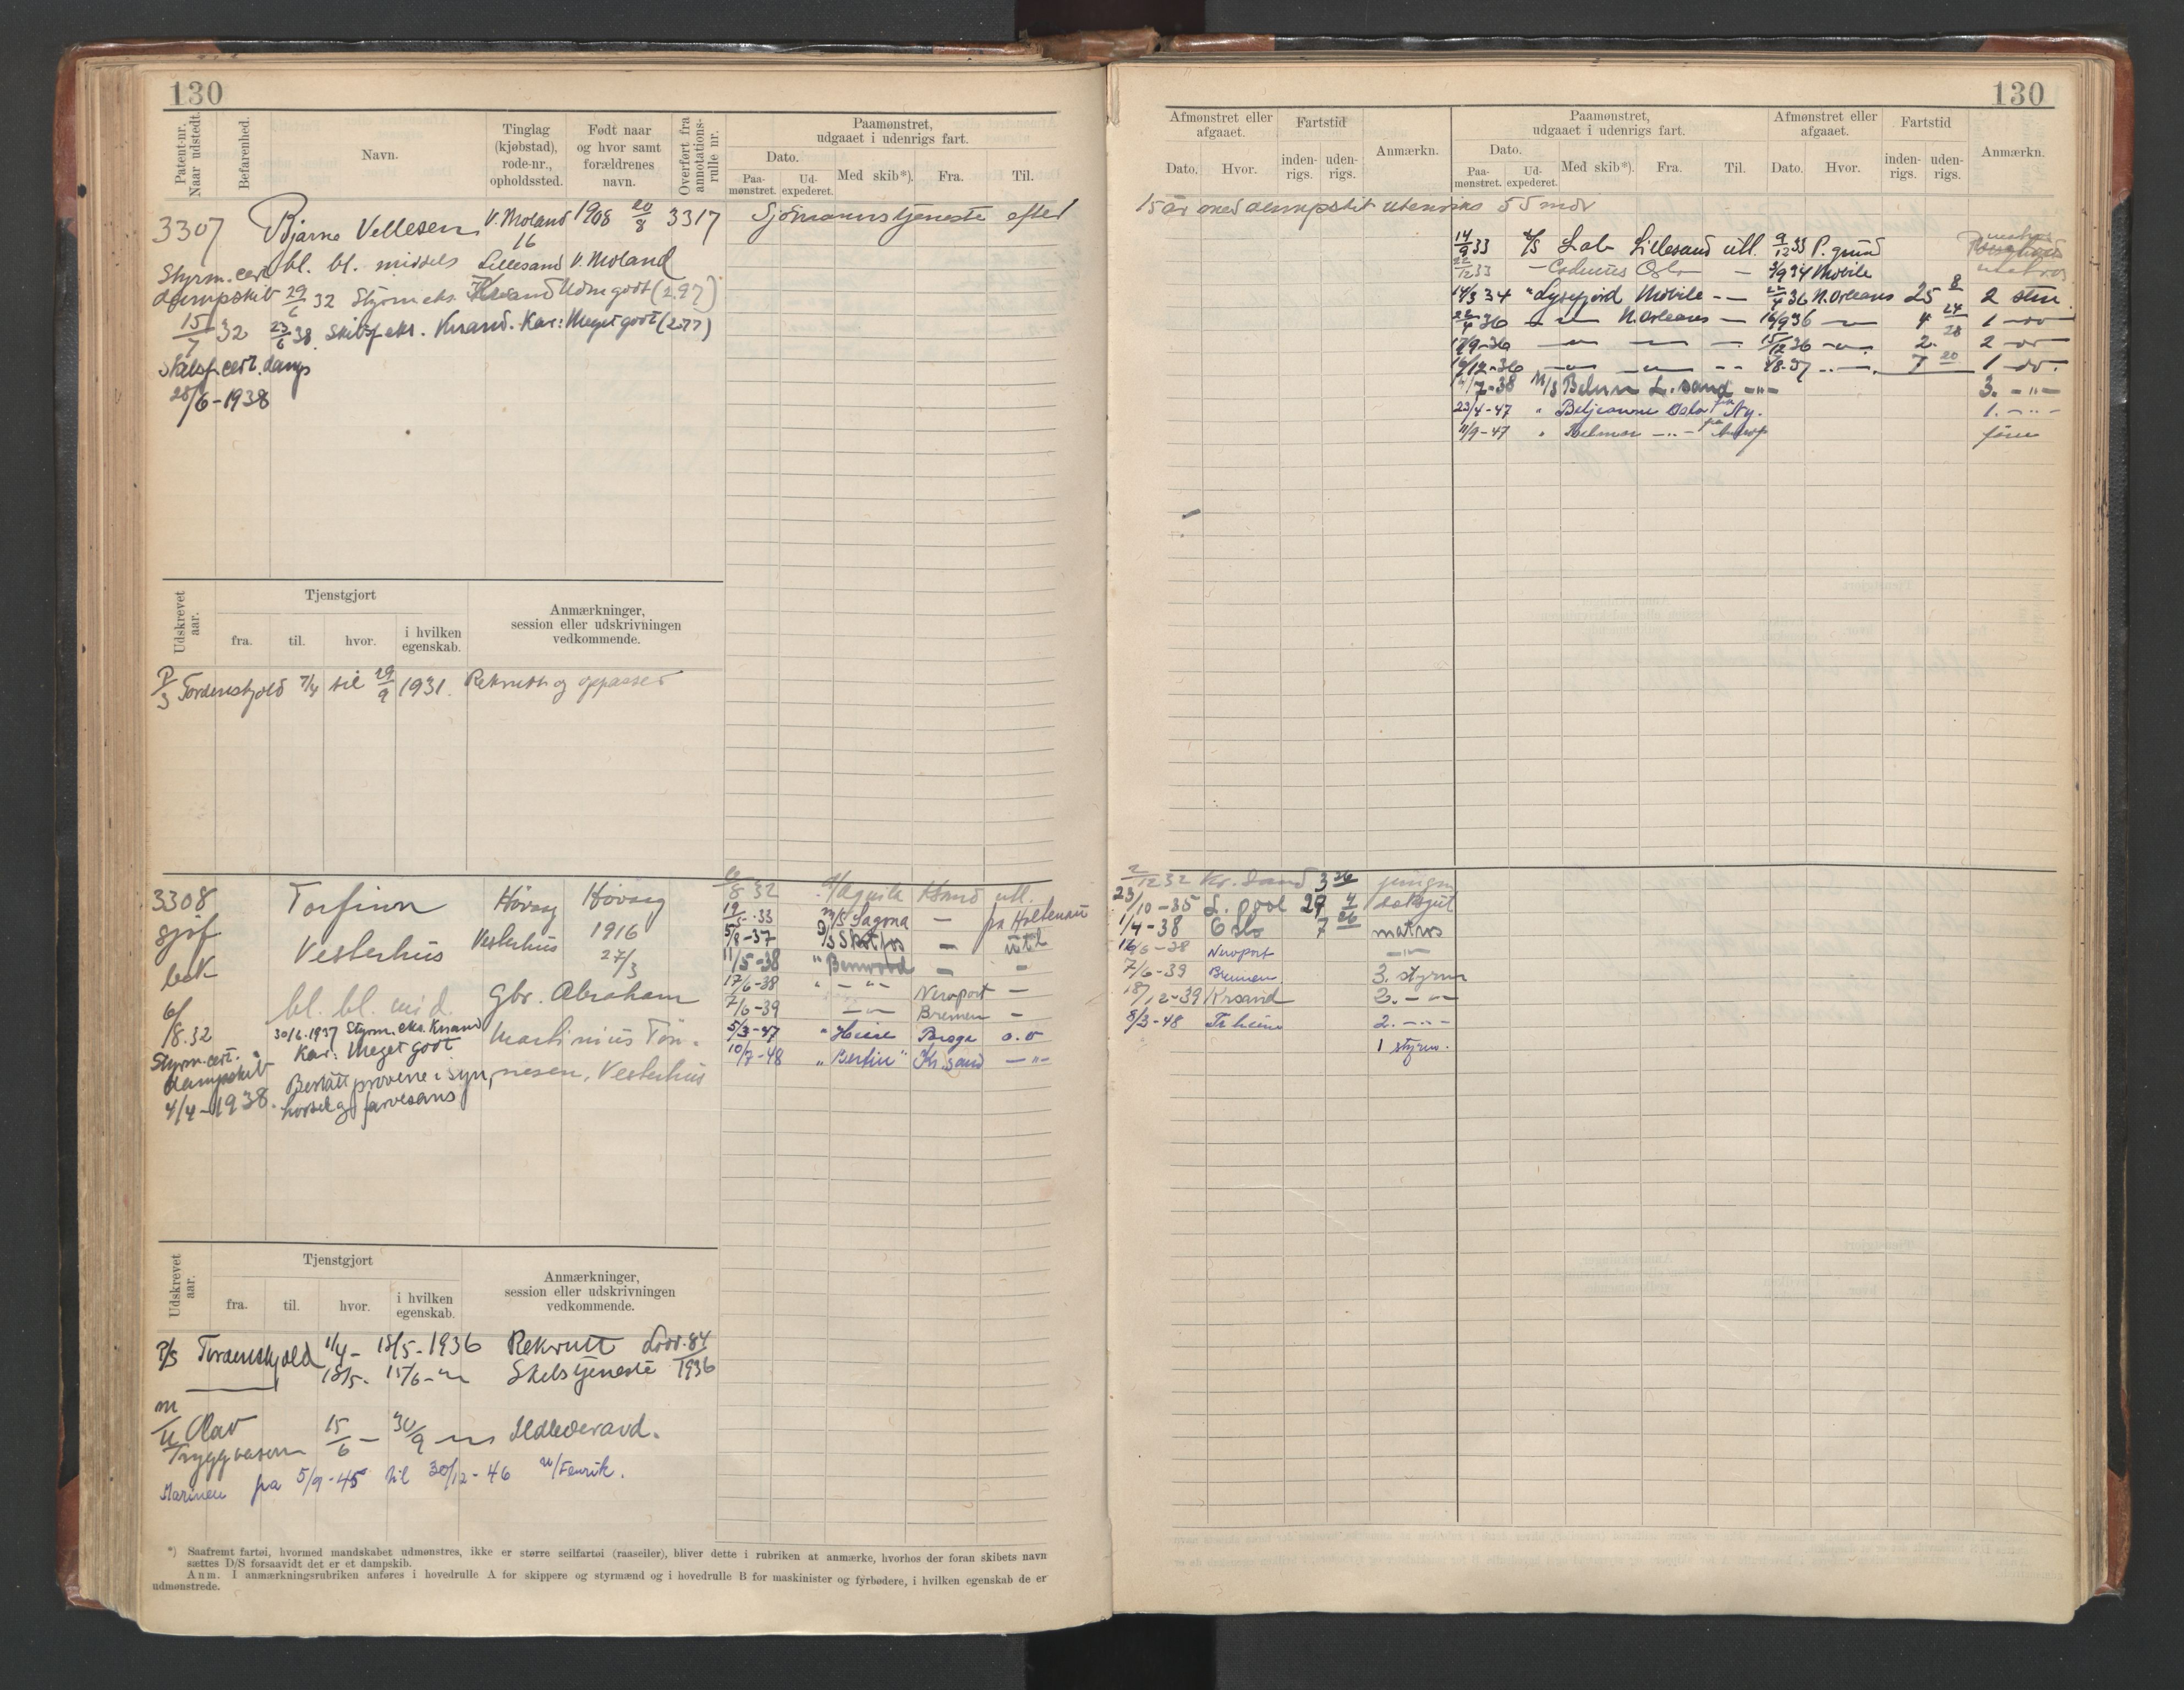 130
Patent-nr. Naar udstedt.
Befarenhed.
Navn.
Tinglag (kjøbstad), rode-nr., opholdssted.
Født naar og hvor samt forældrenes navn.
Overført fra annotations-rulle nr.
Paamønstret, udgaaet i udenrigs fart.
Dato.
Paa-mønstret.
Ud-expederet.
Med skib*).
Fra.
Til.
3307 Bjarne Vellesen V. Moland 1908 20/8 3317 Sjömannstjeneste efter
16
Styrm. cert bl. bl. middels Lillesand V. Moland
dampskib 29/6 32 Styrm eks. Udm godt (2.97)
15/7 32 23/6 38 Skibsf eks. Krsand. Kar: Meget godt (2.77)
Skibsf. cert. damps
28/6-1938
Udskrevet aar.
Tjenstgjort
fra.
til.
hvor.
i hvilken egenskab.
Anmærkninger, session eller udskrivningen vedkommende.
P/S Tordenskjold 7/4 til 29/9 1931. Rekrutt og oppasser
3308 Torfinn Hövåg Hövåg
sjöf Vesterhus Vesterhus 1916
bek 27/3
6/8.32 bl. bl. mid. Gbr. Abraham
30/6.1937 Styrm. eks. Krsand Martinius Tön-
Styrm. cert. Kar: Meget godt
dampskib Bestått prövene i syn, nesen, Vesterhus
4/4-1938. hörsel og farvesans
6/8 32 Aquila Ksand utl.
19/5-33 m/s Sagona — fra Holtenau
5/8-37 D/S Skotfos — utl
11/5-38 " Benwood — -
17/6-38 " - " - Newport —
7/6-39 — " — Bremen -
5/3-47 " Heire Brage o.o
10/7-48 " Bertin " Kr. sand — " —
Udskrevet aar.
Tjenstgjort
fra.
til.
hvor.
i hvilken egenskab.
Anmærkninger, session eller udskrivningen vedkommende.
P/S Tordenskjold 1/4 - 18/5-1936 Rekrutt Lovr. 84
18/5- 15/6 - " Skolstjeneste 1936
m/u Olav Tryggvason 15/6 - 30/9 - " Ildlederavd.
Marinen fra 5/9-45 til 30/12-46 u/Fenrik.
*) Saafremt fartøi, hvormed mandskabet udmønstres, ikke er større seilfartøi (raaseiler), bliver dette i rubriken at anmærke, hvorhos der foran skibets navn
sættes D/S forsaavidt det er et dampskib.
Anm. I anmærkningsrubriken anføres i hovedrulle A for skippere og styrmænd og i hovedrulle B for maskinister og fyrbødere, i hvilken egenskab de er
udmønstrede.
130
Afmønstret eller afgaaet.
Dato.
Hvor.
Fartstid
inden-rigs.
uden-rigs.
Anmærkn.
Paamønstret, udgaaet i udenrigs fart.
Dato.
Paa-mønstret.
Ud-expederet.
Med skib*).
Fra.
Til.
Afmønstret eller afgaaet.
Dato.
Hvor.
Fartstid
inden-rigs.
uden-rigs.
Anmærkn.
15 år med dampskib utenriks 55 mdr
14/9 33 d/s Lab Lillesand utl. 9/12 33 P. grund matros
22/12 33 — Oslo — 3/9 34 Mobile matros
14/3 34 " Lysefjord Mobile - — 22/4 36 N. Orleans 25 8 2 stm.
22/4 36 — " — N. Orleans — 16/9 36 — " — 4 24/28 1 — do —
17/9-36 — " — — " — - 15/12 36 — " — 2. 2 — do —
16/12-36 — " — — " — - - 4/8-37 - . — 7 20 1 — do.
7-38 M/S Belnor L. sand — " — 3. - " -
23/4-47 " Beljeanne Oslo fra Ny. 1. - " -
11/9-47 " Belmor - " - fra Antwp förer
2/12 32 Kr. Sand 3 26 jungm
23/10-35 L. pool 29 4 dekksgut
1/4-38 Oslo 7 26 matros
16/6-38 Newport — " —
7/6-39 Bremen 3. styrm
18/12-39 Krsand 3. - " -
8/3-48 Tr. heim 2. - " -
1 styrm.